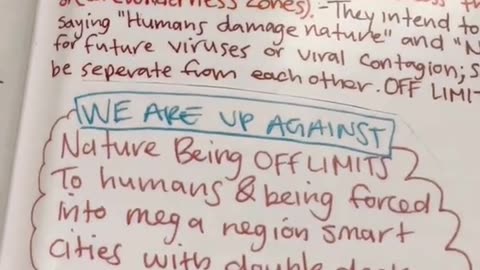 Wilderness Zones). - They intend to
saying "Humans damage nature" and "N
for future viruses or viral contagion; S
be seperate from each other. OFF LIMIT
WE ARE UP AGAINST
Nature Being OFF LIMITS
To humans & being forced
into mega region smart
cities with double